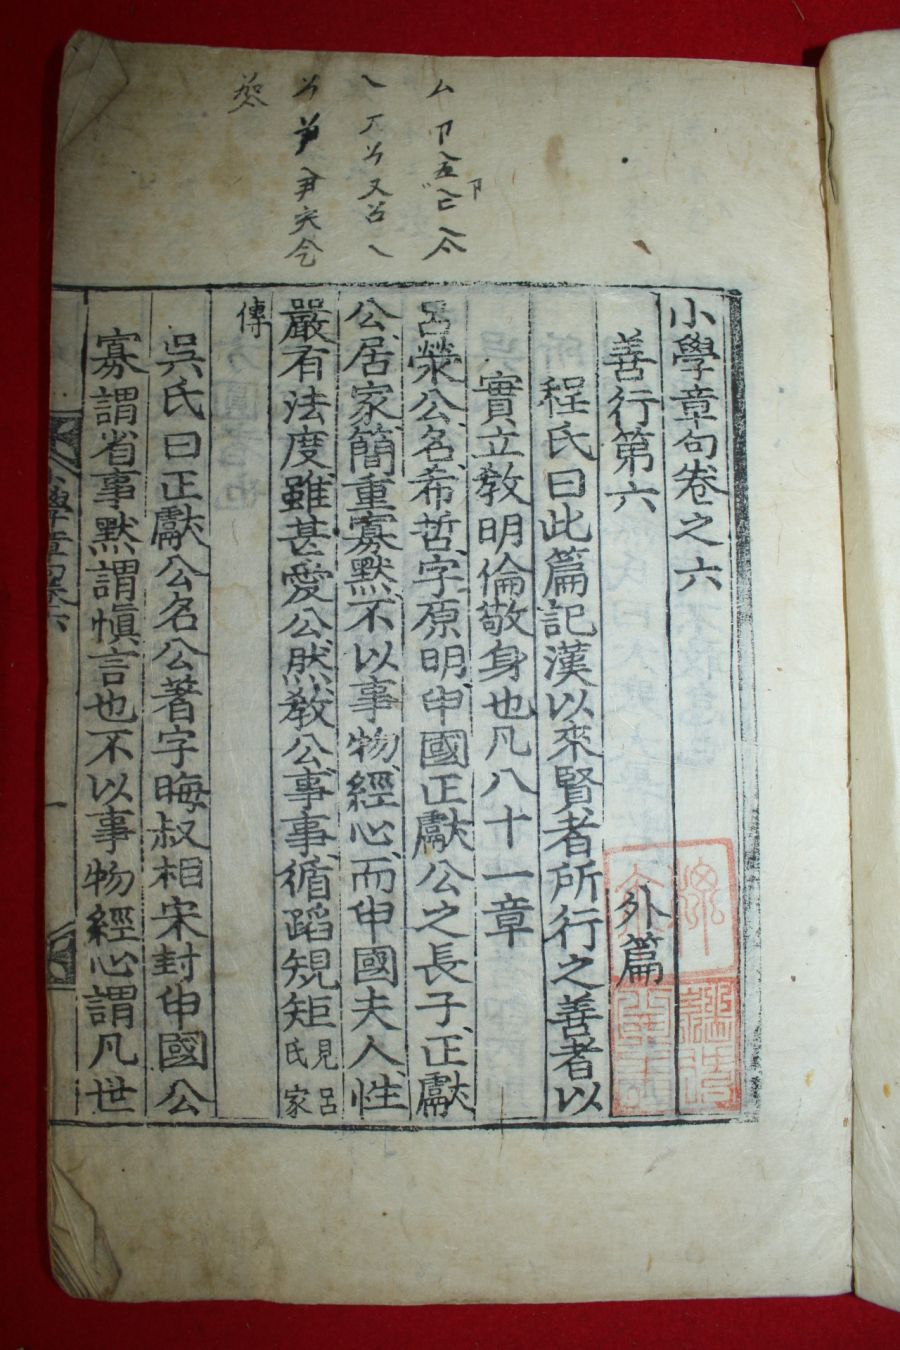 小學章句卷之六
善行第六
外篇
程氏曰此篇記漢以來賢者所行之善者以
實立敎明倫敬身也凡八十一章
呂滎公名希哲字原明申國正獻公之長子正獻
公居家簡重寡默不以事物經心而申國夫人性
嚴有法度雖甚愛公然敎公事事循蹈規矩見呂氏家
傳
吳氏曰正獻公名公著字晦叔相宋封申國公
寡謂省事默謂愼言也不以事物經心謂凡世